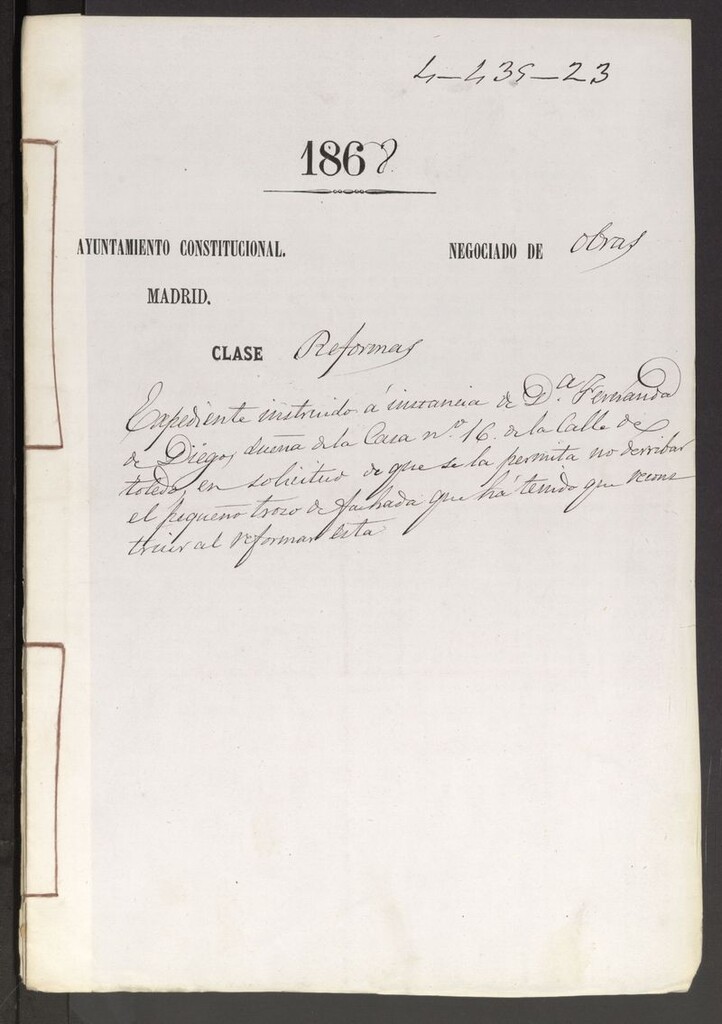 4-439-23
1868
AYUNTAMIENTO CONSTITUCIONAL.
NEGOCIADO DE Obras
MADRID.
CLASE Reformas
Expediente instruido á instancia de D.ª Fernanda
de Diego, dueña de la Casa n.º 16. de la Calle de
toledo en solicitud de que se la permita no derribar
el pequeño trozo de fachada que há tenido que recons
truir al reformar esta